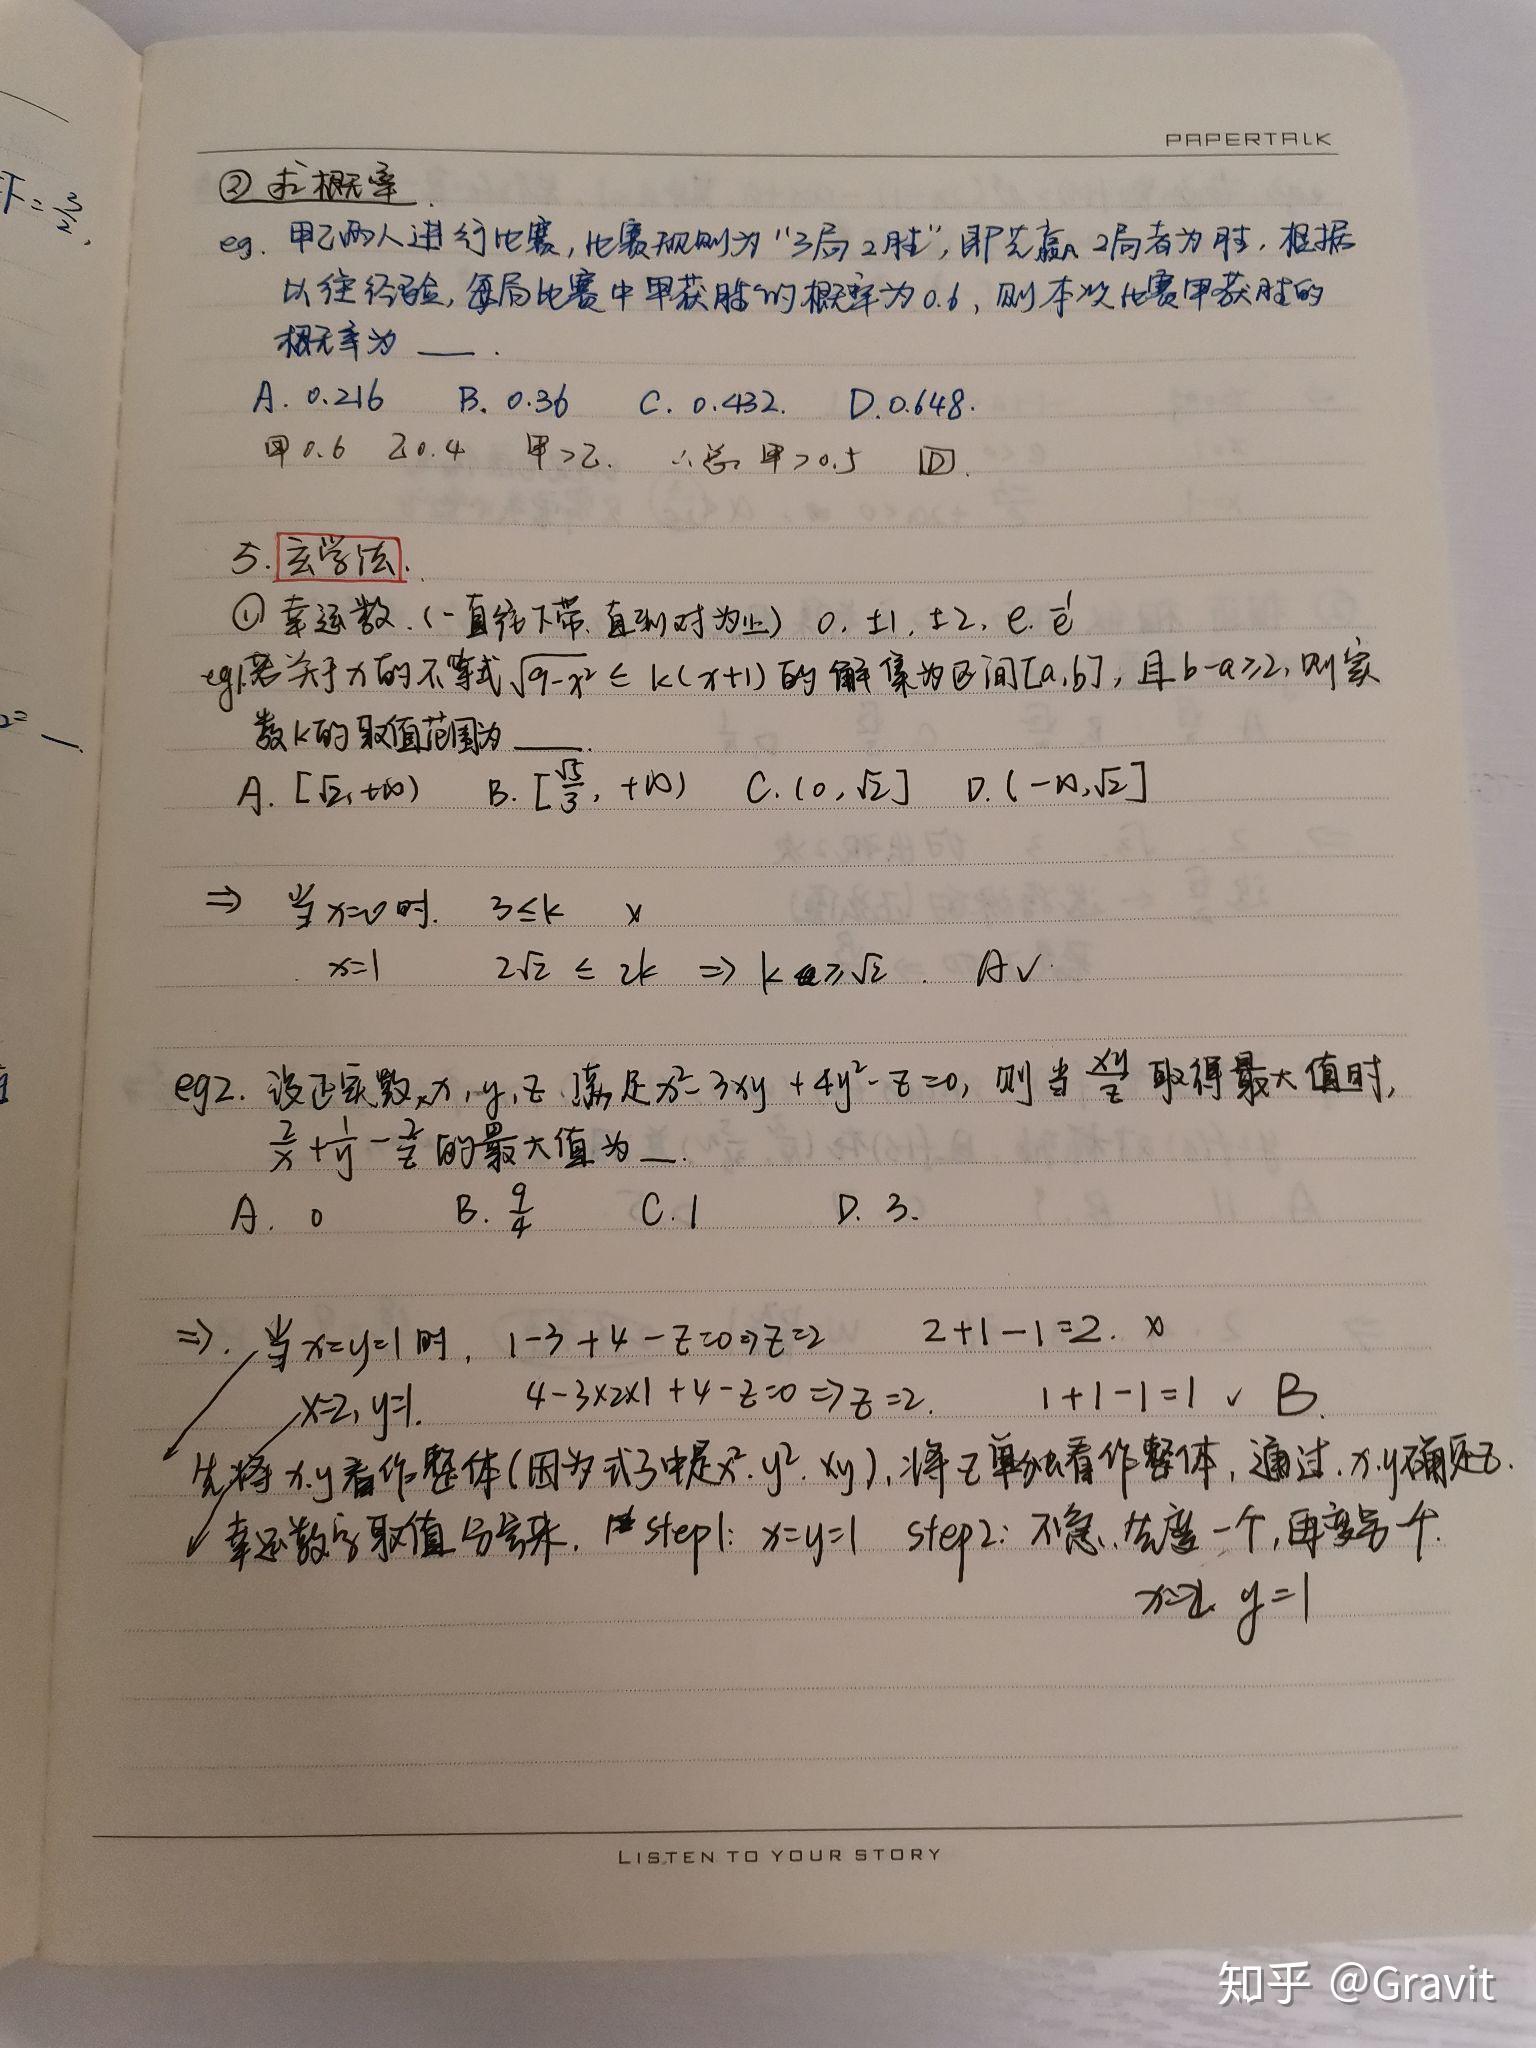 PAPERTALK
下=3/2,
② 求概率.
eg. 甲乙两人进行比赛,比赛规则为"3局2胜",即先赢2局者为胜.根据
以往经验,每局比赛中甲获胜的概率为0.6,则本次比赛甲获胜的
概率为 ___.
A. 0.216 B. 0.36 C. 0.432. D. 0.648.
甲0.6 乙0.4 甲>乙. ∴总 甲>0.5 D.
5. 玄学法.
① 幸运数.(一直往下带.直到对为止) 0. ±1. ±2. e. e⁻¹
eg1.若关于x的不等式√(9-x²) ≤ k(x+1)的解集为区间[a,b],且b-a≥2,则实
数k的取值范围为 ___.
A. [√2,+∞) B. [√5/3, +∞) C. (0,√2] D. (-∞,√2]
⇒ 当x=0时. 3≤k x
x=1 2√2 ≤ 2k ⇒ k ≥√2. A√.
eg2. 设正实数x,y,z 满足x²-3xy+4y²-z=0, 则当xy/z取得最大值时,
2/x+1/y-2/z的最大值为__.
A. 0 B. 9/4 C. 1 D. 3.
⇒. 当x=y=1时, 1-3+4-z=0⇒z=2 2+1-1=2. x
x=2, y=1. 4-3×2×1+4-z=0⇒z=2. 1+1-1=1 √ B.
先将x.y看作整体(因为式子中是x².y².xy),将z单独看作整体,通过.x.y确定z.
幸运数字取值 step1: x=y=1 step2: 不急.先变一个,再变另一个.
x=2. y=1
LISTEN TO YOUR STORY
知乎 @Gravit